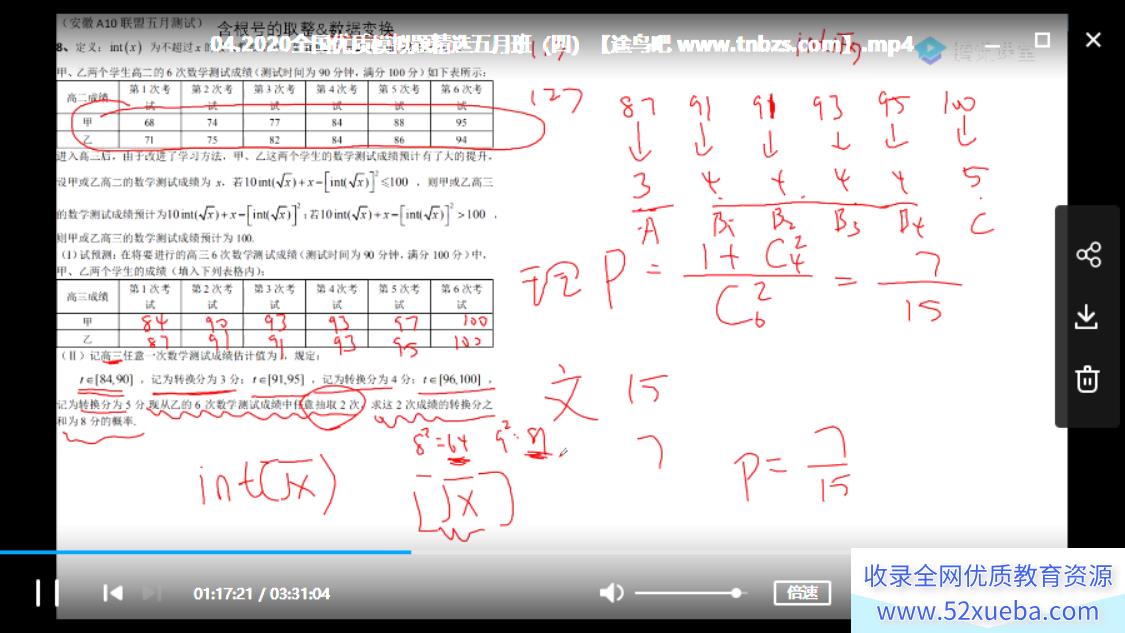 (安徽 A10 联盟五月测试)
含根号的取整&数据变换
04.2020全国优质模拟题精选五月班 (四) 【途鸟吧 www.tnbzs.com】.mp4
8、定义：int(x) 为不超过 x 的
甲、乙两个学生高二的 6 次数学测试成绩（测试时间为 90 分钟，满分 100 分）如下表所示：
高二成绩 第 1 次考试 第 2 次考试 第 3 次考试 第 4 次考试 第 5 次考试 第 6 次考试
甲 68 74 77 84 88 95
乙 71 75 82 84 86 94
进入高三后，由于改进了学习方法，甲、乙这两个学生的数学测试成绩预计有了大的提升，
设甲或乙高二的数学测试成绩为 x，若10int(√x)+x−[int(√x)]²≤100 ，则甲或乙高三
的数学测试成绩预计为10int(√x)+x−[int(√x)]²；若10int(√x)+x−[int(√x)]²>100 ，
则甲或乙高三的数学测试成绩预计为 100.
(Ⅰ) 试预测：在将要进行的高三 6 次数学测试成绩（测试时间为 90 分钟，满分 100 分）中，
甲、乙两个学生的成绩（填入下列表格内）；
高三成绩 第 1 次考试 第 2 次考试 第 3 次考试 第 4 次考试 第 5 次考试 第 6 次考试
甲 84 90 93 93 97 100
乙 87 91 91 93 95 100
(Ⅱ) 记高三任意一次数学测试成绩估计值为 t，规定：
t∈[84,90] ，记为转换分为 3 分；t∈[91,95] ，记为转换分为 4 分；t∈[96,100] ，
记为转换分为 5 分.现从乙的 6 次数学测试成绩中任意抽取 2 次，求这 2 次成绩的转换分之
和为 8 分的概率.
8²=64 9²=81
int(√x)
[√x]
(2) 87 91 91 93 95 100
3 4 4 4 4 5
A B₁ B₂ B₃ B₄ C
理 P = (1+C₄²)/C₆² = 7/15
文 15
7 P = 7/15
腾讯课堂
01:17:21 / 03:31:04
倍速
收录全网优质教育资源
www.52xueba.com